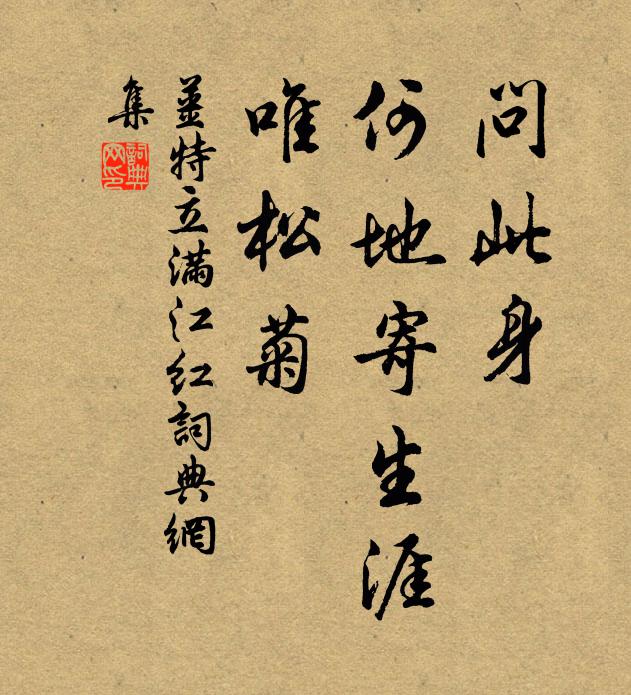 問此身
何地寄生涯
唯松菊
姜特立滿江紅詞典網
集
詞典
网印